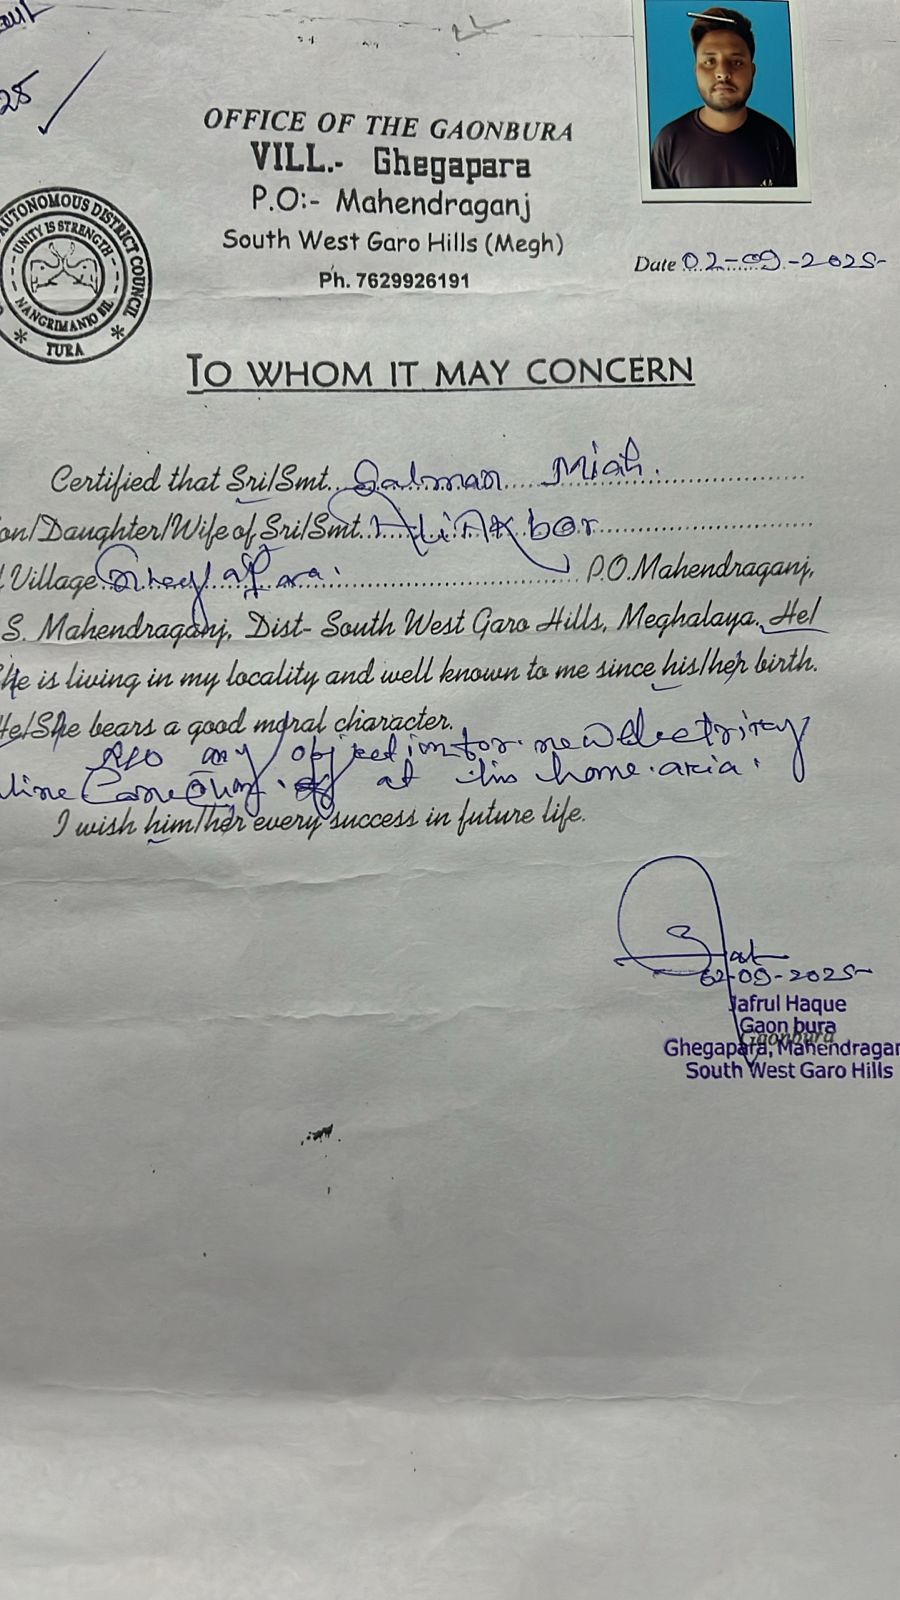 25
OFFICE OF THE GAONBURA
VILL.- Ghegapara
P.O:- Mahendraganj
South West Garo Hills (Megh)
Ph. 7629926191
Date 02-09-2025
AUTONOMOUS DISTRICT COUNCIL
UNITY IS STRENGTH
NANGRIMANIO BIL
TURA
TO WHOM IT MAY CONCERN
Certified that Sri/Smt. Salman Miah.
on/Daughter/Wife of Sri/Smt. Ali Akbor
Village Ghegapara. P.O. Mahendraganj,
S. Mahendraganj, Dist- South West Garo Hills, Meghalaya. He/
She is living in my locality and well known to me since his/her birth.
He/She bears a good moral character.
any objection for new Electricity
line at his home aria.
I wish him/her every success in future life.
02-09-2025
Jafrul Haque
Gaon bura
Gaonbura
Ghegapara, Mahendragan
South West Garo Hills